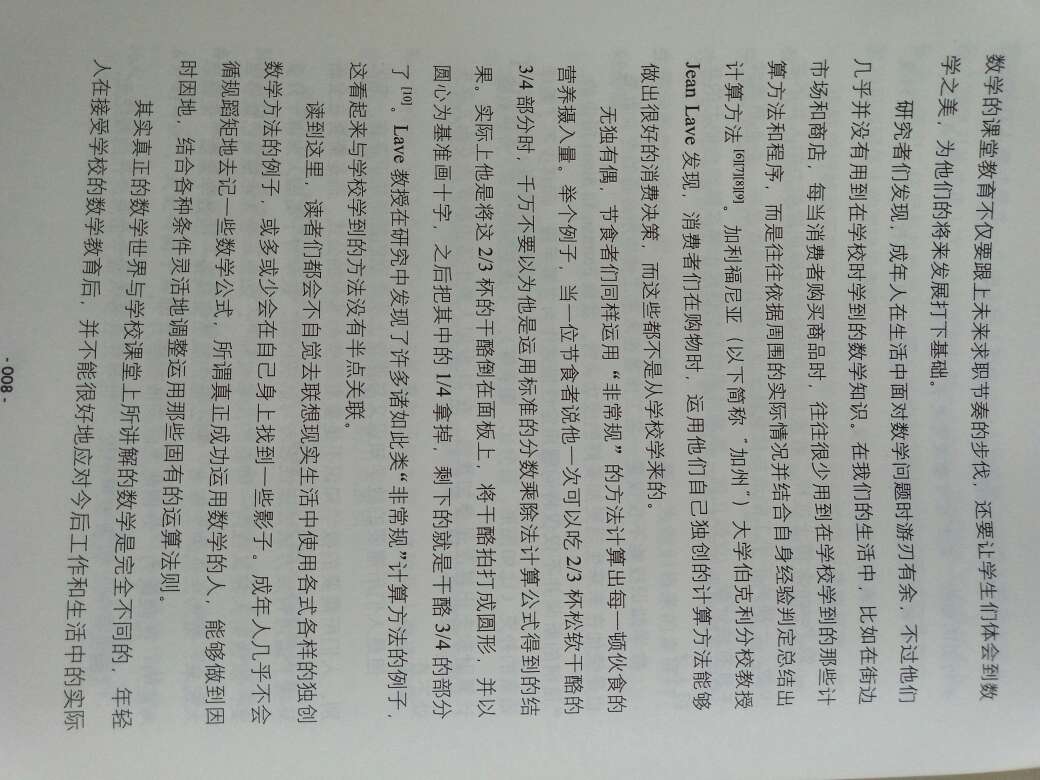 数学的课堂教育不仅要跟上未来求职节奏的步伐，还要让学生们体会到数
学之美，为他们的将来发展打下基础。
研究者们发现，成年人在生活中面对数学问题时游刃有余，不过他们
几乎并没有用到在学校时学到的数学知识。在我们的生活中，比如在街边
市场和商店，每当消费者购买商品时，往往很少用到在学校学到的那些计
算方法和程序，而是往往依据周围的实际情况并结合自身经验判定总结出
计算方法 [6][7][8][9]。加利福尼亚（以下简称“加州”）大学伯克利分校教授
Jean Lave 发现，消费者们在购物时，运用他们自己独创的计算方法能够
做出很好的消费决策，而这些都不是从学校学来的。
无独有偶，节食者们同样运用“非常规”的方法计算出每一顿伙食的
营养摄入量。举个例子，当一位节食者说他一次可以吃 2/3 杯松软干酪的
3/4 部分时，千万不要以为他是运用标准的分数乘除法计算公式得到的结
果。实际上他是将这 2/3 杯的干酪倒在面板上，将干酪拍打成圆形，并以
圆心为基准画十字，之后把其中的 1/4 拿掉，剩下的就是干酪 3/4 的部分
了 [10]。Lave 教授在研究中发现了许多诸如此类“非常规”计算方法的例子，
这看起来与学校学到的方法没有半点关联。
读到这里，读者们都会不自觉去联想现实生活中使用各式各样的独创
数学方法的例子，或多或少会在自己身上找到一些影子。成年人几乎不会
循规蹈矩地去记一些数学公式，所谓真正成功运用数学的人，能够做到因
时因地，结合各种条件灵活地调整运用那些固有的运算法则。
其实真正的数学世界与学校课堂上所讲解的数学是完全不同的，年轻
人在接受学校的数学教育后，并不能很好地应对今后工作和生活中的实际
- 008 -